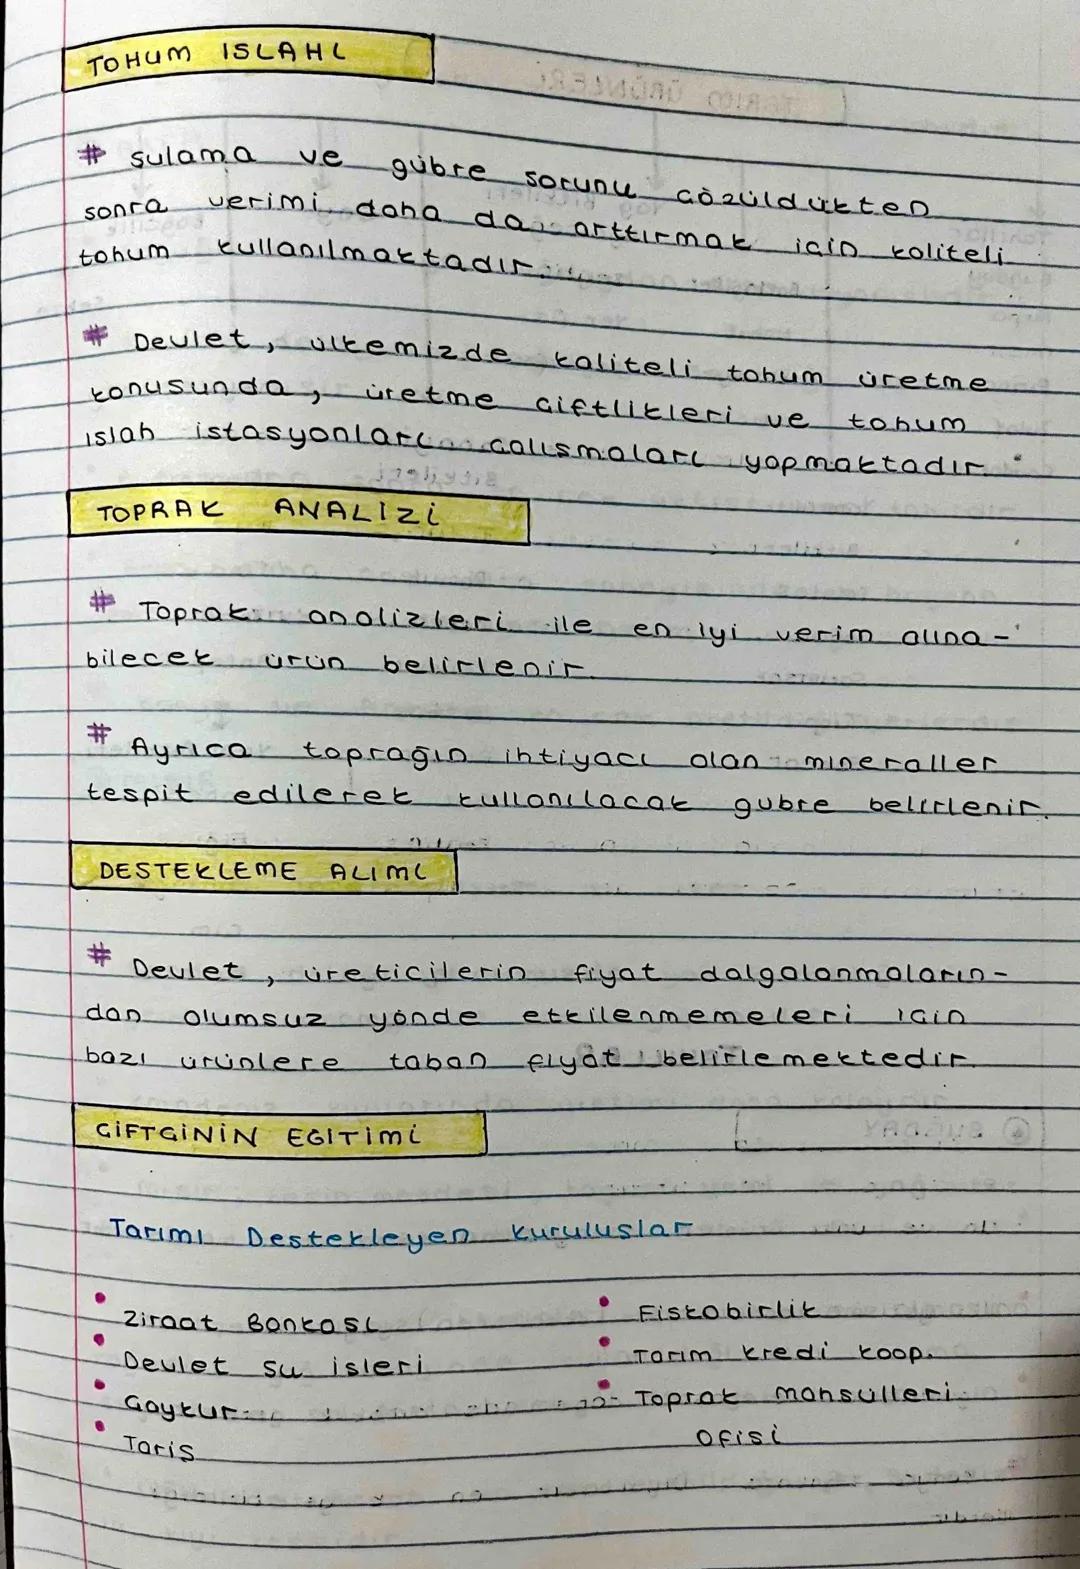 TOHUM ISLAHI
# Sulama ve gübre sorunu çözüldükten
sonra verimi daha da arttırmak için kaliteli
tohum kullanılmaktadır.
# Devlet, ülkemizde kaliteli tohum üretme
konusunda, üretme çiftlikleri ve tohum
ıslah istasyonları çalışmaları yapmaktadır.
TOPRAK ANALİZİ
# Toprak analizleri ile en iyi verim alına-
bilecek ürün belirlenir.
# Ayrıca toprağın ihtiyacı olan mineraller
tespit edilerek kullanılacak gübre belirlenir.
DESTEKLEME ALIMI
# Devlet, üreticilerin fiyat dalgalanmaların-
dan olumsuz yönde etkilenmemeleri için
bazı ürünlere taban fiyat belirlemektedir.
ÇİFTÇİNİN EĞİTİMİ
Tarımı Destekleyen Kuruluşlar
• Ziraat Bankası
• Devlet su işleri
• Çaykur
• Tariş
• Fiskobirlik
• Tarım kredi koop.
• Toprak mahsulleri
ofisi